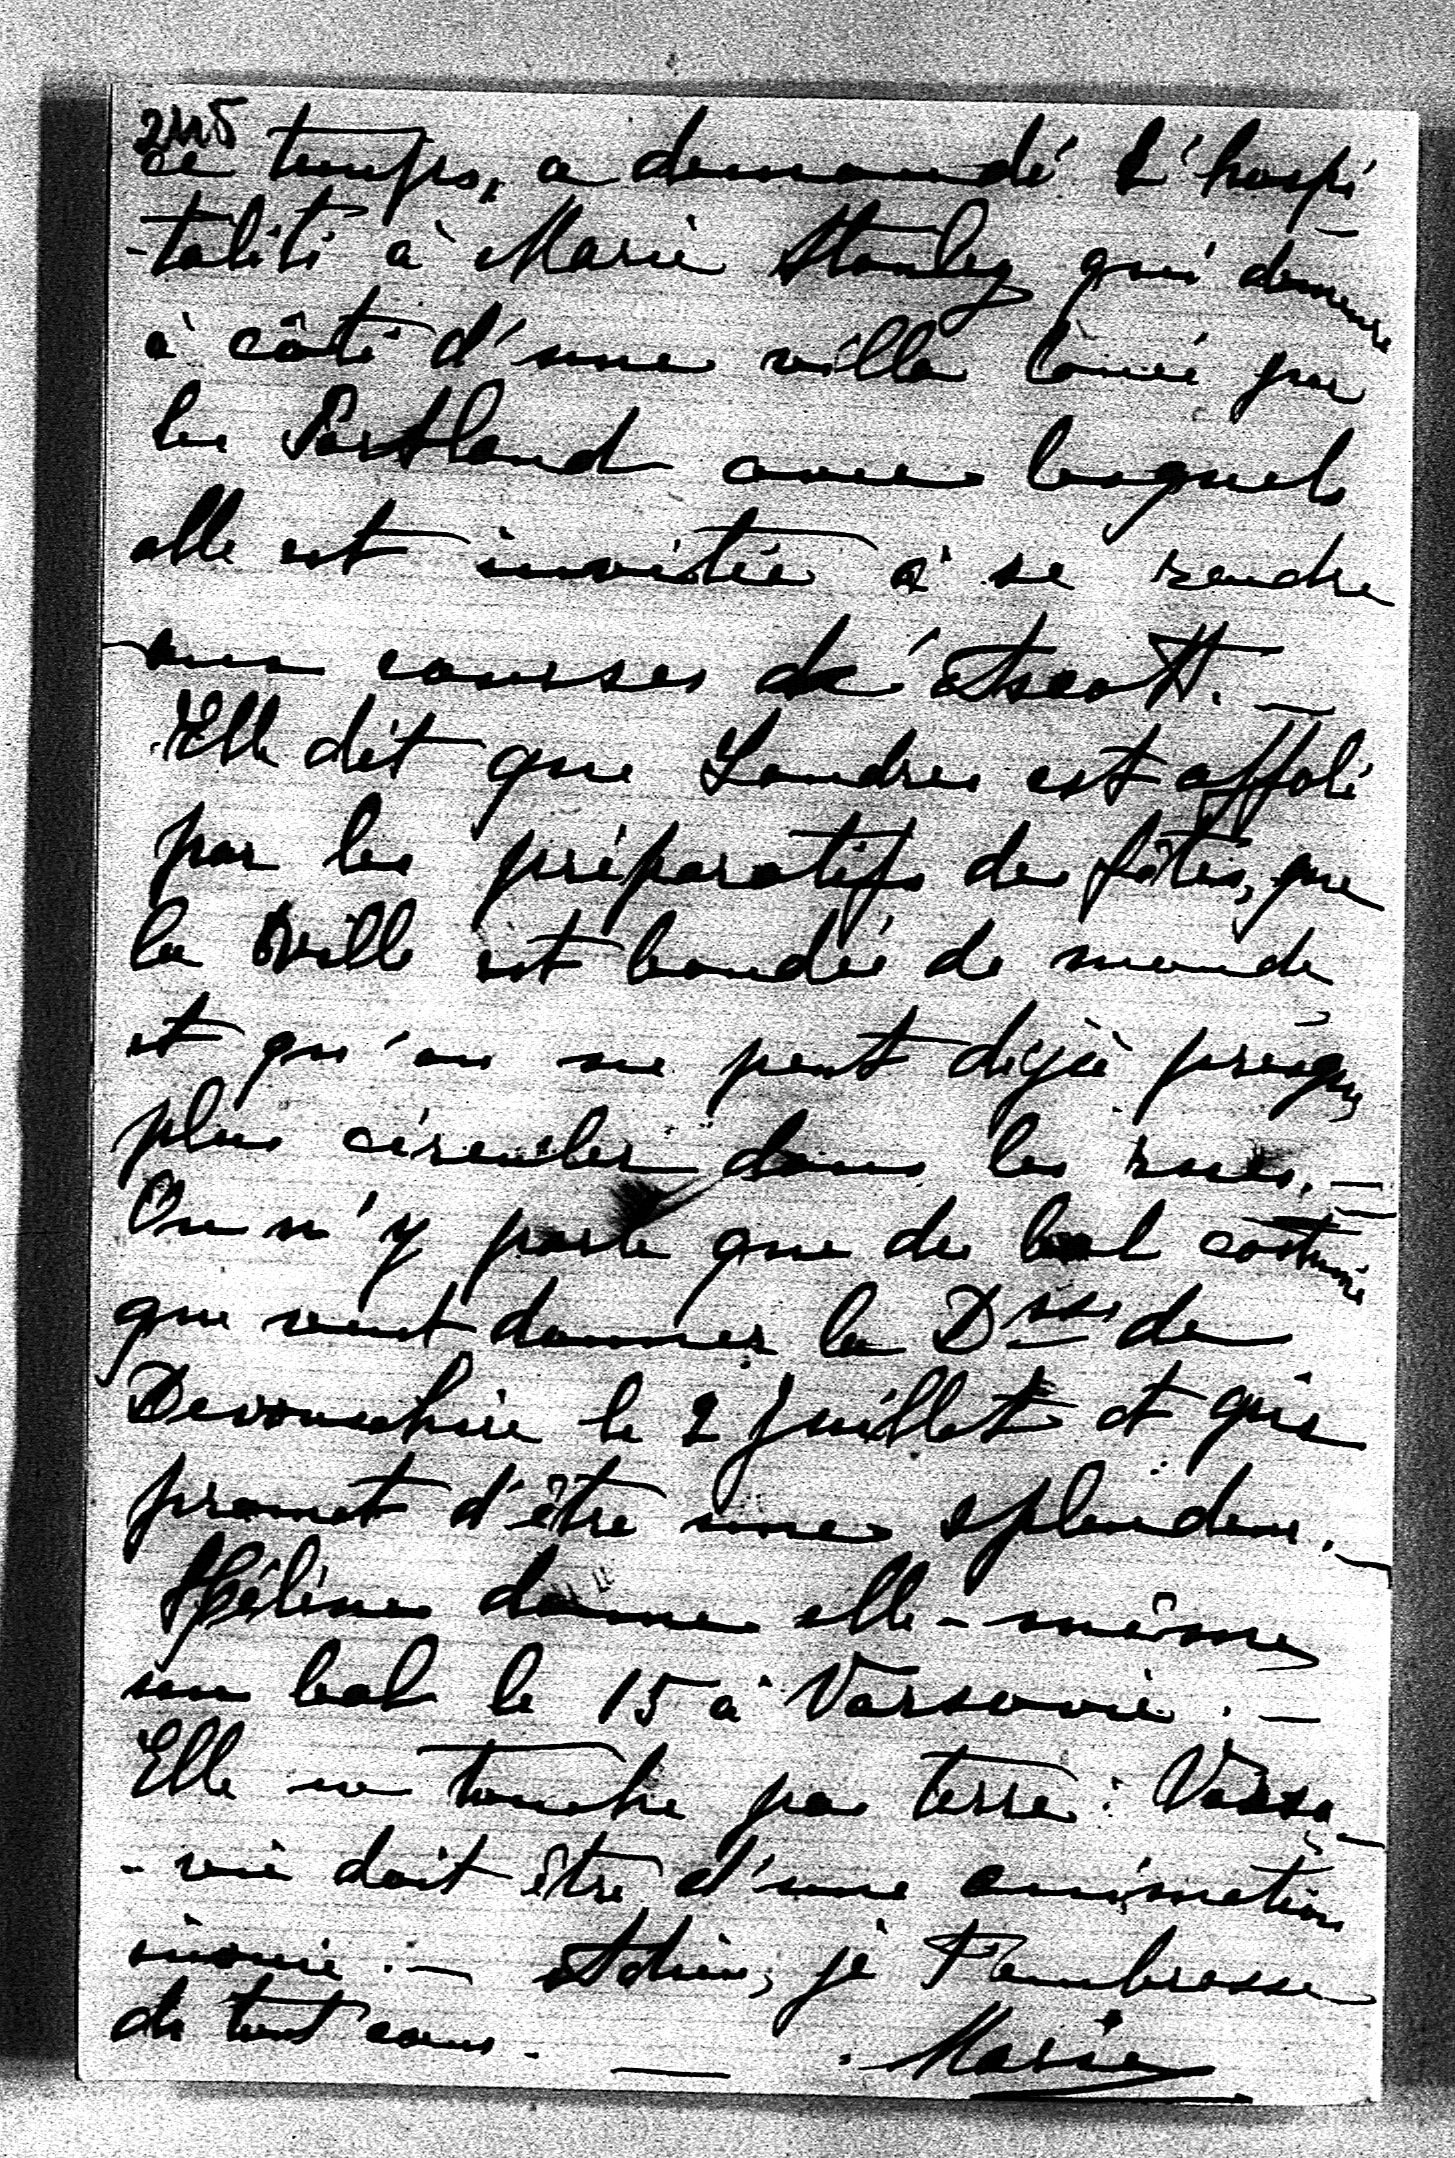 2115
ce temps, a demandé l'hospi
-talité à Marie Stanley qui demeure
à côté d'une villa louée par
les Portland avec lesquels
elle est invitée à se rendre
aux courses d'Ascott. —
Elle dit que Londres est affolé
par les préparatifs des fêtes, que
la ville est bondée de monde
et qu'on ne peut déjà presque
plus circuler dans les rues. —
On n'y parle que du bal costumé
que veut donner la Dsse de
Devonshire le 2 Juillet et qui
promet d'être une splendeur. —
Hélène donne elle-même
un bal le 15 à Varsovie. —
Elle ne touche pas terre: Varso-
-vie doit être d'une animation
inouïe. — Adieu, je t'embrasse
de tout cœur. — Marie